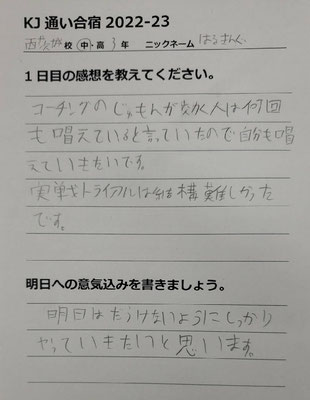 KJ 通い合宿 2022-23
西葛西校 中・高 3年 ニックネーム はるまんぐ
1日目の感想を教えてください。
コーチングのじゅもんが効く人は何回
も唱えていると言っていたので自分も唱
えていきたいです。
実戦トライアルは結構難しかった
です。
明日への意気込みを書きましょう。
明日はだらけないようにしっかり
やっていきたいと思います。